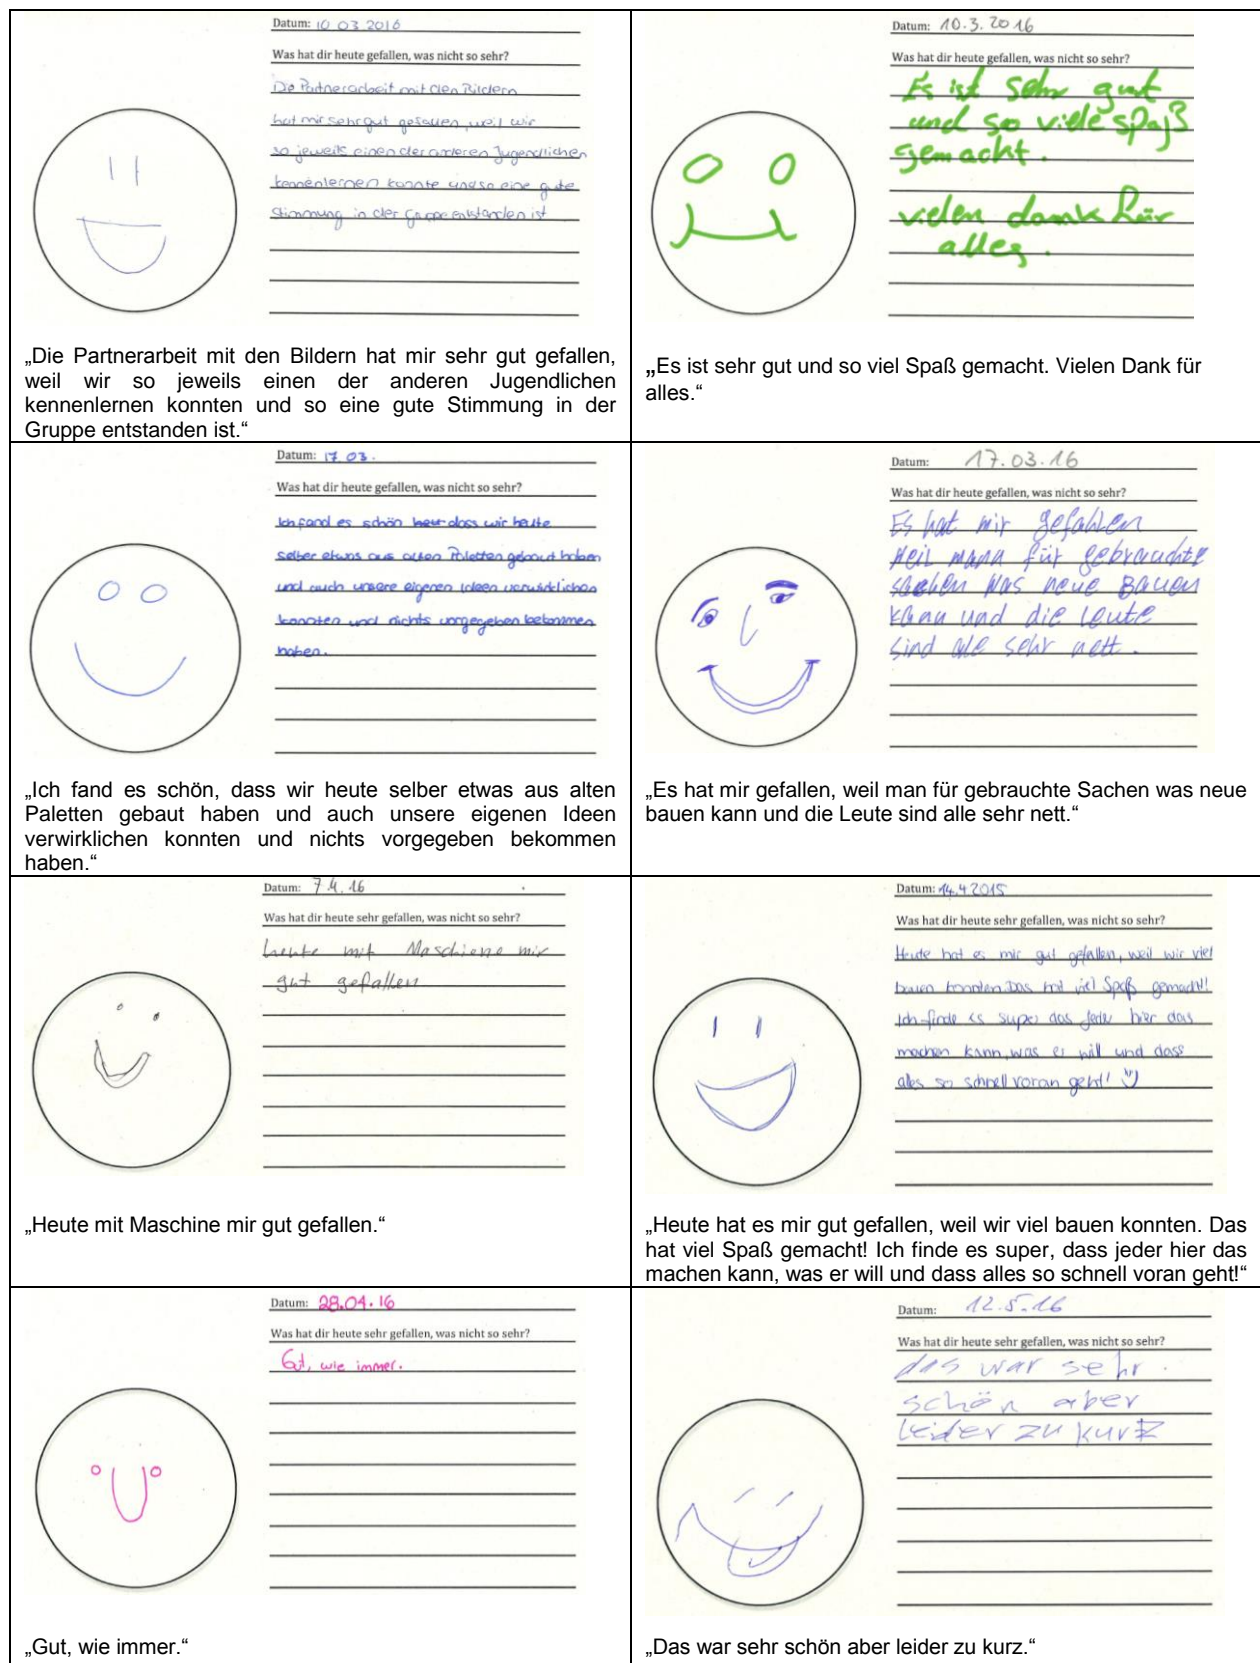 Datum: 10 03 2016
Was hat dir heute gefallen, was nicht so sehr?
Die Partnerarbeit mit den Bildern
hat mir sehr gut gefallen, weil wir
so jeweils einen der anderen Jugendlichen
kennenlernen konnte und so eine gute
Stimmung in der Gruppe entstanden ist
„Die Partnerarbeit mit den Bildern hat mir sehr gut gefallen,
weil wir so jeweils einen der anderen Jugendlichen
kennenlernen konnten und so eine gute Stimmung in der
Gruppe entstanden ist.“
Datum: 10.3.2016
Was hat dir heute gefallen, was nicht so sehr?
Es ist sehr gut
und so viele spaß
gemackt.
vielen dank für
alles.
„Es ist sehr gut und so viel Spaß gemacht. Vielen Dank für
alles.“
Datum: 17.03.
Was hat dir heute gefallen, was nicht so sehr?
Ich fand es schön dass wir heute
selber etwas aus alten Paletten gebaut haben
und auch unsere eigenen Ideen verwirklichen
konnten und nichts vorgegeben bekommen
haben.
„Ich fand es schön, dass wir heute selber etwas aus alten
Paletten gebaut haben und auch unsere eigenen Ideen
verwirklichen konnten und nichts vorgegeben bekommen
haben.“
Datum: 17.03.16
Was hat dir heute gefallen, was nicht so sehr?
Es hat mir gefahlen
weil mann für gebrauchte
sachen was neue Bauen
kann und die leute
sind ale sehr nett.
„Es hat mir gefallen, weil man für gebrauchte Sachen was neue
bauen kann und die Leute sind alle sehr nett.“
Datum: 7.4.16
Was hat dir heute sehr gefallen, was nicht so sehr?
heute mit Maschiene mir
gut gefallen
„Heute mit Maschine mir gut gefallen.“
Datum: 14.4 2015
Was hat dir heute sehr gefallen, was nicht so sehr?
Heute hat es mir gut gefallen, weil wir viel
bauen konnten. Das hat viel Spaß gemacht!
Ich finde es super das jeder hier das
machen kann, was er will und dass
alles so schnell voran geht!
„Heute hat es mir gut gefallen, weil wir viel bauen konnten. Das
hat viel Spaß gemacht! Ich finde es super, dass jeder hier das
machen kann, was er will und dass alles so schnell voran geht!“
Datum: 28.04.16
Was hat dir heute sehr gefallen, was nicht so sehr?
Gut, wie immer.
„Gut, wie immer.“
Datum: 12.5.16
Was hat dir heute sehr gefallen, was nicht so sehr?
das war sehr
schön aber
leider zu kurz
„Das war sehr schön aber leider zu kurz.“